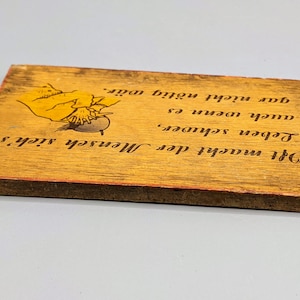 Oft macht der Mensch sich's
Leben schwer,
auch wenn es
gar nicht nötig wär.